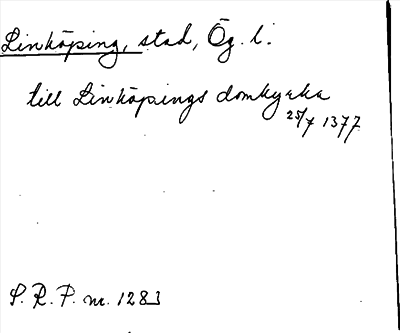 Linköping, stad, Ög. l.
till Linköpings domkyrka
25/7 1377
S. R. P. nr. 1283